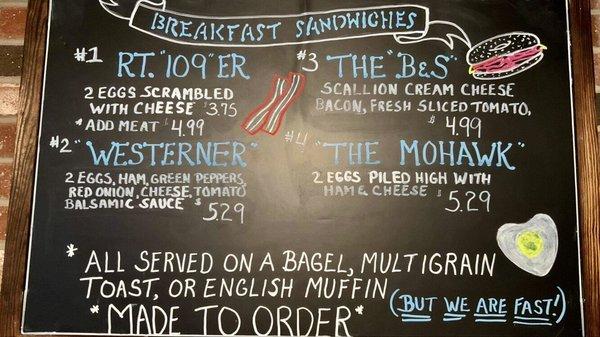 BREAKFAST SANDWICHES
#1 RT. "109" ER
2 EGGS SCRAMBLED
WITH CHEESE $3.75
* ADD MEAT $4.99
#3 THE "B&S"
SCALLION CREAM CHEESE
BACON, FRESH SLICED TOMATO,
$4.99
#2 "WESTERNER"
2 EGGS, HAM, GREEN PEPPERS,
RED ONION, CHEESE, TOMATO
BALSAMIC SAUCE $5.29
#4 "THE MOHAWK"
2 EGGS PILED HIGH WITH
HAM & CHEESE $5.29
* ALL SERVED ON A BAGEL, MULTIGRAIN
TOAST, OR ENGLISH MUFFIN
(BUT WE ARE FAST!)
*MADE TO ORDER*